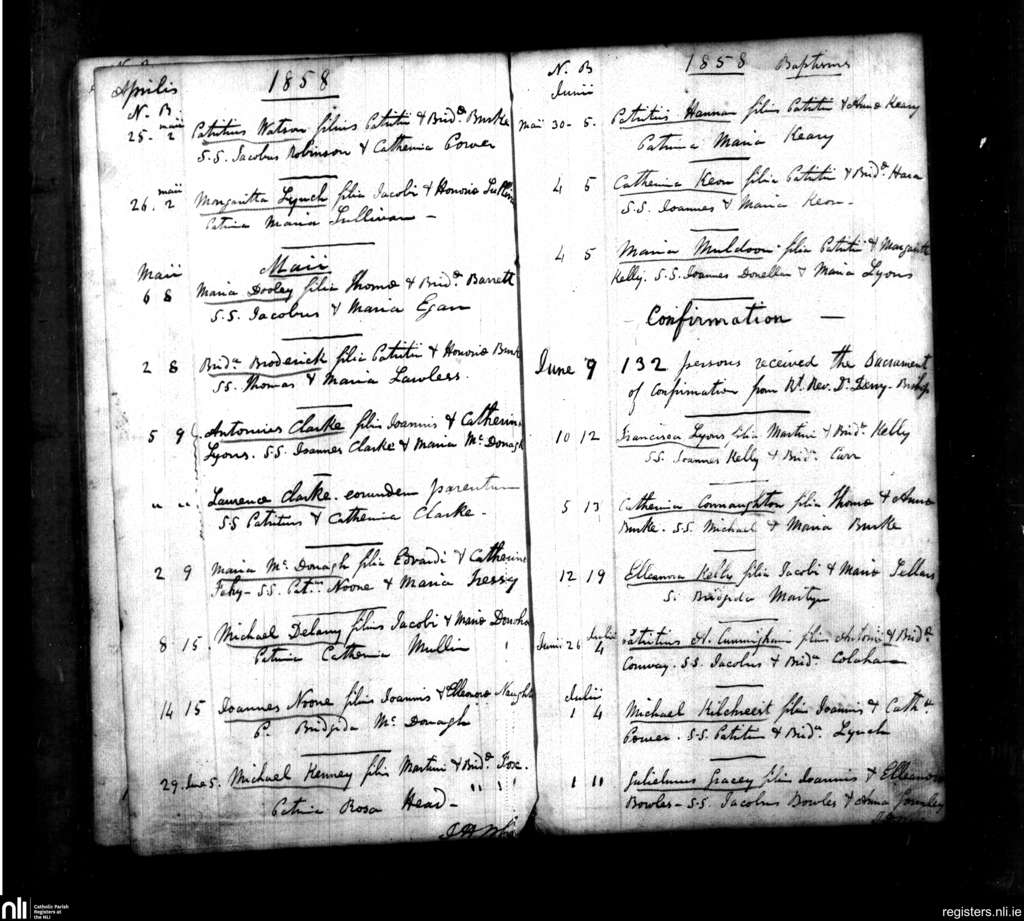 Aprilis 1858
N. B
25. maii 2 Patritius Watson filius Patritii & Brid.ae Burke
S.S. Jacobus Robinson & Catherina Power
26. maii 2 Margaritta Lynch filia Jacobi & Honoriae
Patrina Maria Sullivan –
Maii Maii
6 8 Maria Dooley filia Thomae & Brid.ae Barrett
S.S. Jacobus & Maria Egan
2 8 Brid.a Broderick filia Patritii & Honoriae
SS. Thomas & Maria Lawless.
5 9 Antonius Clarke filius Joannis & Catherinae
Lyons. S.S. Joannes Clarke & Maria Mc Donagh
" " Laurence Clarke. eorundem parentum
S.S Patritius & Catherina Clarke –
2 9 Maria Mc Donagh filia Edvardi & Catherinae
Fahy – S.S. Noone & Maria
8 15. Michael Delany filius Jacobi & Mariae
Patrina Catherina Mullin
14 15 Joannes Noone filius Joannis & Elleanorae
P. Bridgida Mc Donagh
29. June 5. Michael Kenney filius Martini & Brid.ae Fox.
Patrina Rosa Head –
N. B 1858 Baptisms
Junii
maii 30 – 5. Patritius Hannan filius Patritii & Annae Keary
Patrina Maria Keary
4 5 Catherina Keon filia Patritii & Brid.ae Hara
S.S. Joannes & Maria Keon –
4 5 Maria Muldoon filia Patritii & Margaritta
Kelly. S.S. Joannes Donellan & Maria Lyons
– Confirmation –
June 9 132 persons received the Sacrament
of Confirmation from Rt. Rev. Dr. Derry – Bishop
10 12 Francisca Lyons filia Martini & Brid.ae Kelly
S.S. Joannes Kelly & Brid.a Carr
5 13 Catherina Connaughton filia Thomae & Annae
Burke. S.S. Michael & Maria Burke
12 19 Elleanora Kelly filia Jacobi & Mariae
S. Bridgida Martyn
Junii 26 Julii 4 Patritius Cunningham filius Antonii & Brid.ae
Conway. S.S. Jacobus & Brid.a Colahan
Julii
1 4 Michael Kilchreest filius Joannis & Cath.ae
Power. S.S. Patritius & Brid.a Lynch
1 11 Gulielmus Gracey filius Joannis & Elleanorae
Bowles – S.S. Jacobus Bowles & Anna
nli Catholic Parish
Registers at
the NLI
registers.nli.ie